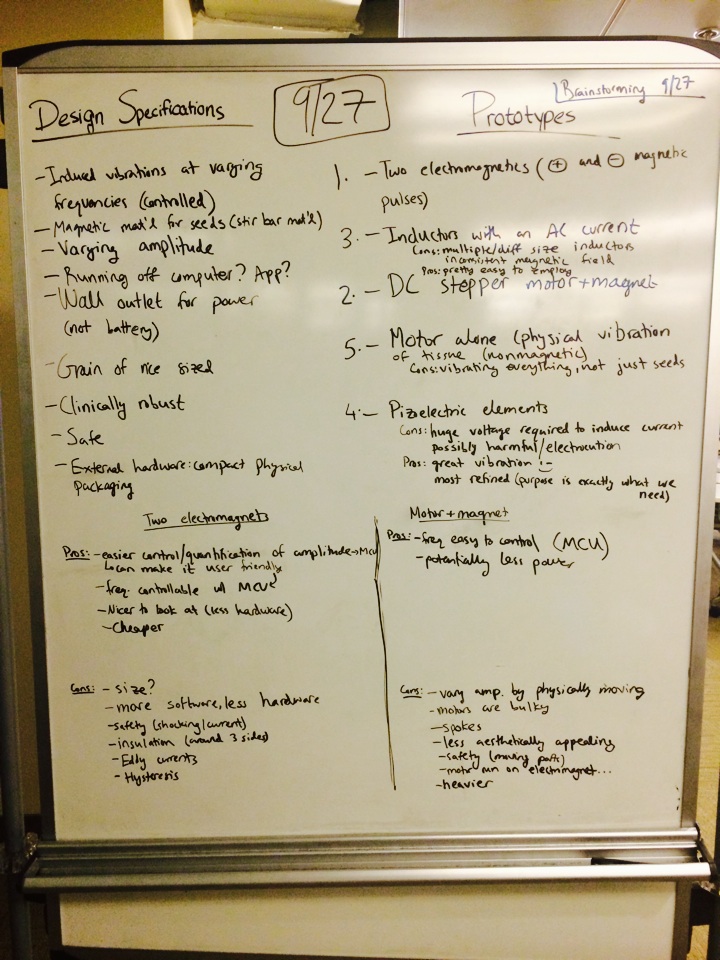 Brainstorming 9/27
Design Specifications
9/27
Prototypes
- Induced vibrations at varying
frequencies (controlled)
- Magnetic mat'l for seeds (stir bar mat'l)
- Varying amplitude
- Running off computer? App?
- Wall outlet for power
(not battery)
- Grain of rice sized
- Clinically robust
- Safe
- External hardware: compact physical
packaging
1. - Two electromagnetics (⊕ and ⊖ magnetic
pulses)
3. - Inductors with an AC current
Cons: multiple/diff size inductors
inconsistent magnetic field
Pros: pretty easy to employ
2. - DC stepper motor + magnet
5. - Motor alone (physical vibration
of tissue (nonmagnetic)
Cons: vibrating everything, not just seeds
4. - Pizoelectric elements
Cons: huge voltage required to induce current
possibly harmful/electrocution
Pros: great vibration :-
most refined (purpose is exactly what we
need)
Two electromagnets
Pros: - easier control/quantification of amplitude → MCU
↳ can make it user friendly
- freq. controllable w/ MCU
- Nicer to look at (less hardware)
- Cheaper
Cons: - size?
- more software, less hardware
- safety (shocking/current)
- insulation (around 3 sides)
- Eddy currents
- Hysteresis
Motor + magnet
Pros: - freq easy to control (MCU)
- potentially less power
Cons: - vary amp. by physically moving
- motors are bulky
- spokes
- less aesthetically appealing
- safety (moving parts)
- motor run on electromagnet...
- heavier